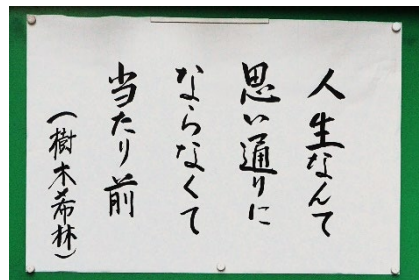 人生なんて
思い通りに
ならなくて
当たり前
(樹木希林)